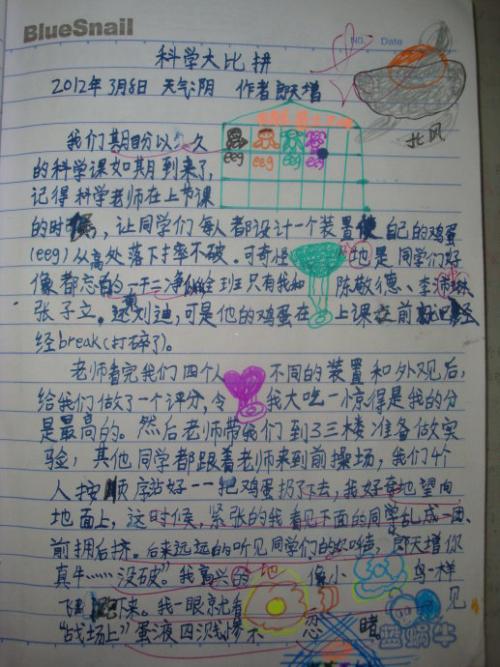 BlueSnail
NO.
Date
科学大比拼
2012年3月8日 天气阴 作者 郎天增
北风
我们期盼以久
的科学课如期到来了,
eeg eeg eeg eeg
记得科学老师在上节课
的时, 让同学们每人都设计一个装置使自己的鸡蛋
(eeg)从高处落下摔不破。可奇怪地是同学们好
像都忘的一干二净 全班只有我和 陈敬德、李
张子立。还 刘迪,可是他的鸡蛋在上课 前 经
经break(打碎了)。
老师看完我们四个人 不同的装置和外观后,
给我们做了一个评分,令 我大吃一惊得是我的分
是最高的。然后老师带我们到3三楼准备做实
验,其他同学都跟着老师来到前操场,我们4个
人按顺序站好一一把鸡蛋扔了下去,我好奇地望向
地面上,这时候,紧张的我看见下面的同学乱成一团、
前拥后挤。后来远远的听见同学们的 声,郎天增你
真牛……没破”。我高兴的地 像小 鸟一样
飞 下来。我一眼就看 见
“战场上”蛋液四溅惨不 忍 睹。
蓝蜗牛